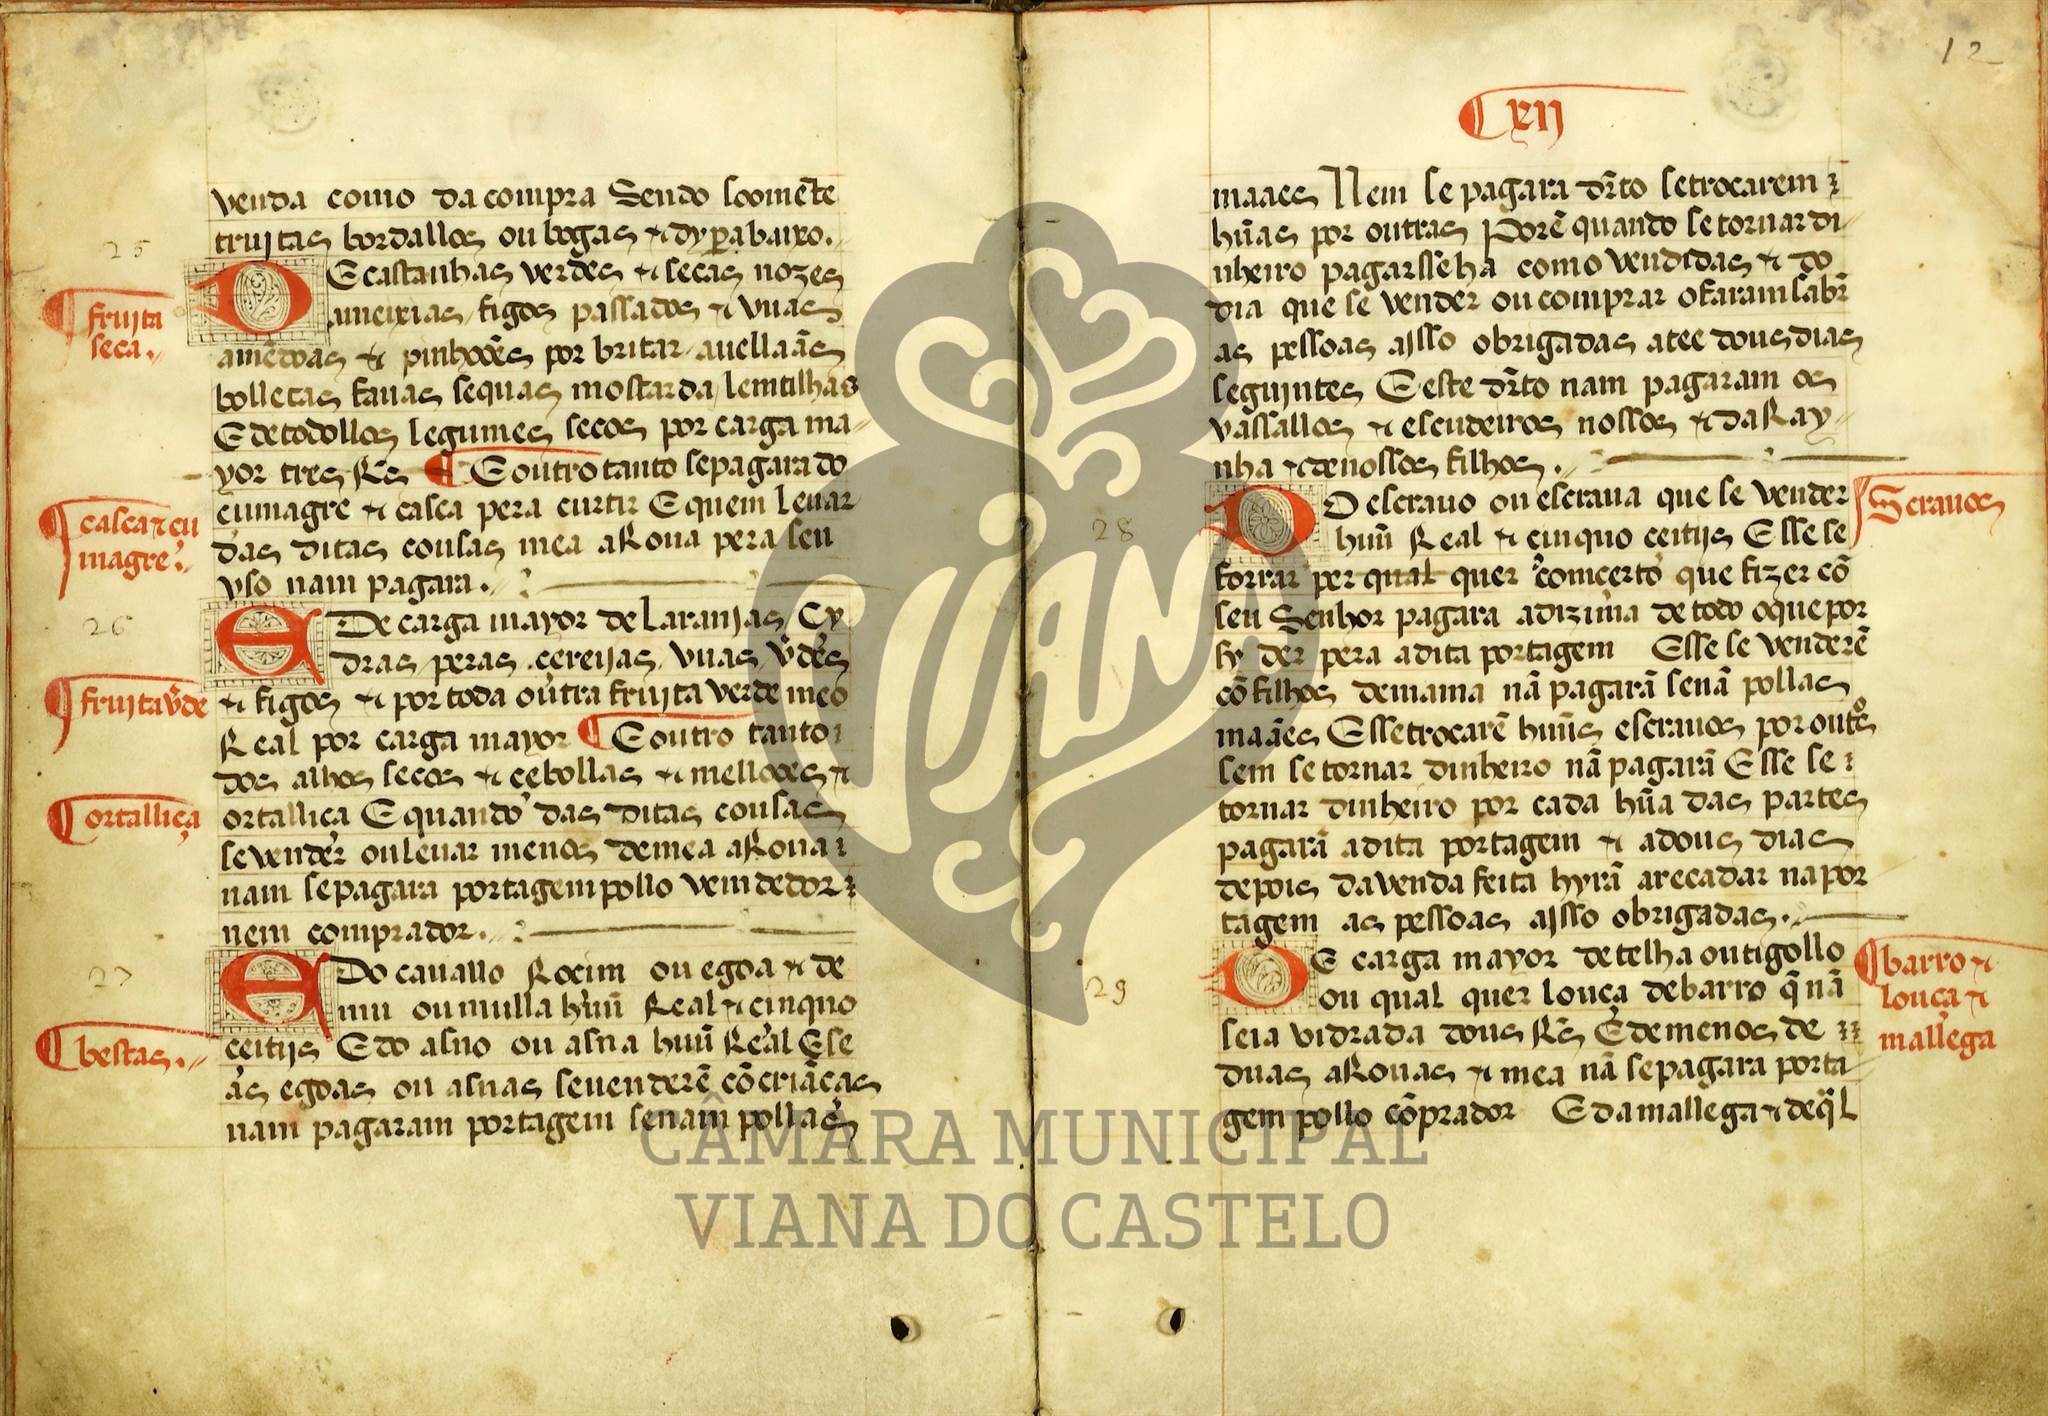 venda como da compra Sendo soomẽte
truitas bordallos ou bogas & dy pera baixo.
25
fruita
seca.
De castanhas verdes & secas nozes
ameixias figos passados & vuas
amẽdoas & pinhoões por britar auellaãs
bolletas fauas sequas mostarda lemtilhas
E de todollos legumes secos por carga ma
yor tres Rs ¶ E outro tanto se pagara do
casca & çu
magre.
çumagre & casca pera curtir E quem leuar
das ditas cousas mea aRoua pera seu
vso nam pagara.
26
E De carga mayor de laranjas Cy
dras peras cereijas vuas ṽdes
fruita ṽde
& figos & por toda outra fruita verde meo
Real por carga mayor ¶ E outro tanto
dos alhos secos & cebollas & mellooes &
ortalliça
ortalliça E quando das ditas cousas
se vender ou leuar menos de mea aRoua
nam se pagara portagem pollo vemdedor
nem comprador.
27
E Do cauallo Rocim ou egoa & de
mu ou mulla huũ Real & cinquo
bestas.
ceitijs E do asno ou asna huũ Real E se
as egoas ou asnas se venderẽ cõ criãcas
nam pagaram portagem senam pollas
12
¶ xij
maaes Nem se pagara dr̃to se trocarem
hũas por outras Porẽ quando se tornar di
nheiro pagarsseha como vendidas & do
dia que se vender ou comprar o faram sabr̃
as pessoas aisso obrigadas atee dous dias
seguintes E este dr̃to nam pagaram os
vassallos & escudeiros nossos & da Ray
nha & de nossos filhos.
28
Do escrauo ou escraua que se vender
Scrauos
huũ Real & cinquo ceitijs E sse se
forrar per qual quer comcerto que fizer cõ
seu Senhor pagara a dizima de todo o que por
sy der pera a dita portagem E sse se venderẽ
cõ filhos de mama nã pagarã senã pollas
maães E sse trocarẽ huũs escrauos por outos
sem se tornar dinheiro nã pagarã E sse se
tornar dinheiro por cada hũa das partes
pagarã a dita portagem & a dous dias
depois da venda feita hyrã arecadar na por
tagem as pessoas aisso obrigadas.
29
De carga mayor de telha ou tigollo
barro &
louça &
mallega
ou qual quer louça de barro q̃ nã
seia vidrada dous Rs E de menos de
duas aRouas & mea nã se pagara porta
gem pollo cõprador E da mallega & de ql̃
VIANA
CÂMARA MUNICIPAL
VIANA DO CASTELO